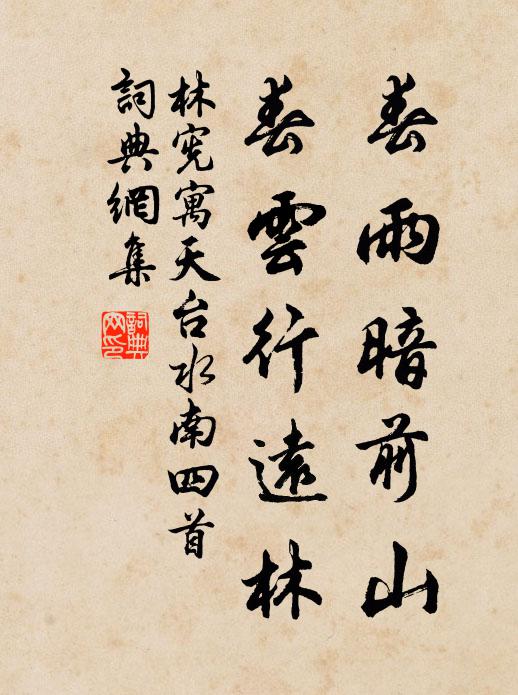 春雨暗前山
春雲行遠林
林宪寓天台水南四首
詞典網集
詞典
网印